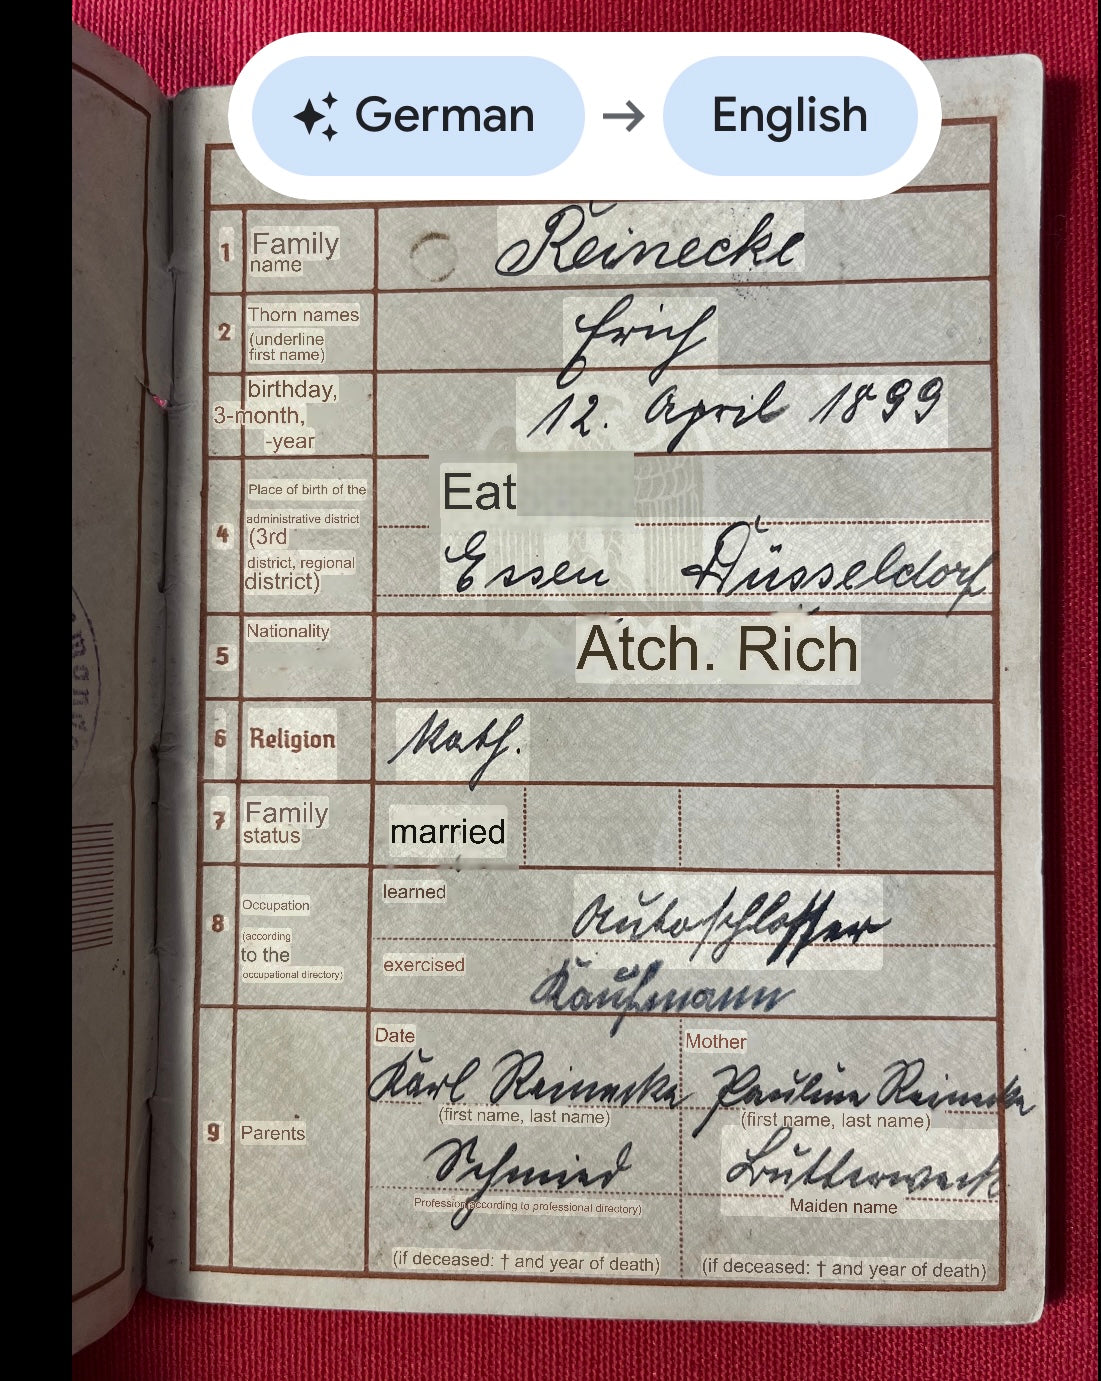 German → English
1 Family name Reinecke
2 Thorn names (underline first name) Erich
birthday, 3-month, -year 12. April 1899
4 Place of birth of the administrative district (3rd district, regional district) Eat
Essen Düsseldorf
5 Nationality Atch. Rich
6 Religion Kath.
7 Family status married
8 Occupation (according to the occupational directory)
learned Autoschlosser
exercised Kaufmann
9 Parents
Date Mother
Karl Reinecke Pauline Reinecke
(first name, last name) (first name, last name)
Schmied Butterweck
Profession according to professional directory) Maiden name
(if deceased: † and year of death) (if deceased: † and year of death)